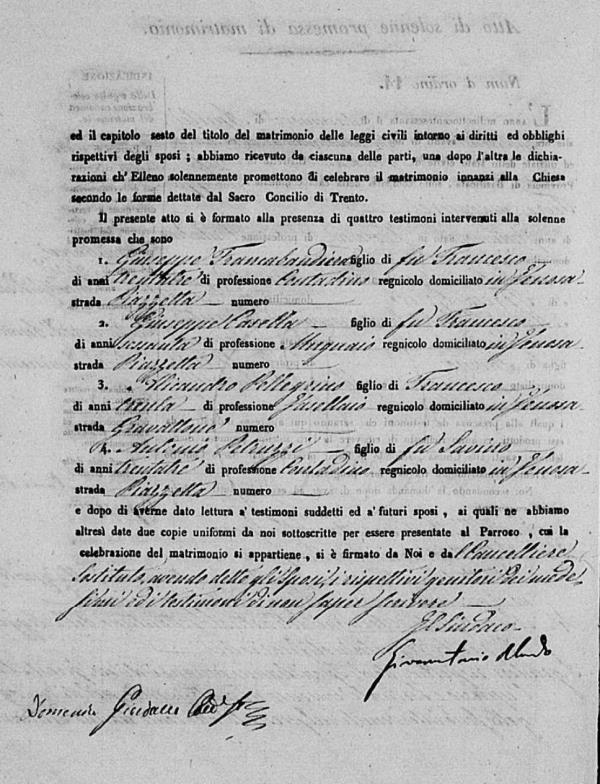 Atto di solenne promessa di matrimonio.
Num d'ordine
ed il capitolo sesto del titolo del matrimonio delle leggi civili intorno ai diritti ed obblighi
rispettivi degli sposi ; abbiamo ricevuto da ciascuna delle parti, una dopo l'altra le dichia-
razioni ch'Elleno solennemente promettono di celebrare il matrimonio innanzi alla Chiesa
secondo le forme dettate dal Sacro Concilio di Trento.
Il presente atto si è formato alla presenza di quattro testimoni intervenuti alla solenne
promessa che sono
1. Giuseppe Francabandiera figlio di fu Francesco
di anni trentatre di professione Contadino regnicolo domiciliato in Genosa
strada Piazzetta numero
2. Giuseppe Casella figlio di fu Francesco
di anni sessanta di professione regnicolo domiciliato in Genosa
strada Piazzetta numero
3. Nicandro Pellegrino figlio di Francesco
di anni trenta di professione regnicolo domiciliato in Genosa
strada numero
4. Antonio Petruzzi figlio di fu Savino
di anni trentatre di professione Contadino regnicolo domiciliato in Genosa
strada Piazzetta numero
e dopo di averne dato lettura a' testimoni suddetti ed a' futuri sposi , ai quali ne abbiamo
altresì date due copie uniformi da noi sottoscritte per essere presentate al Parroco , cui la
celebrazione del matrimonio si appartiene , si è firmato da Noi e dal Cancelliere
Sostituto, avendo detto gli Sposi, i rispettivi genitori dei mede
simi ed i testimoni di non saper scrivere
Il Sindaco